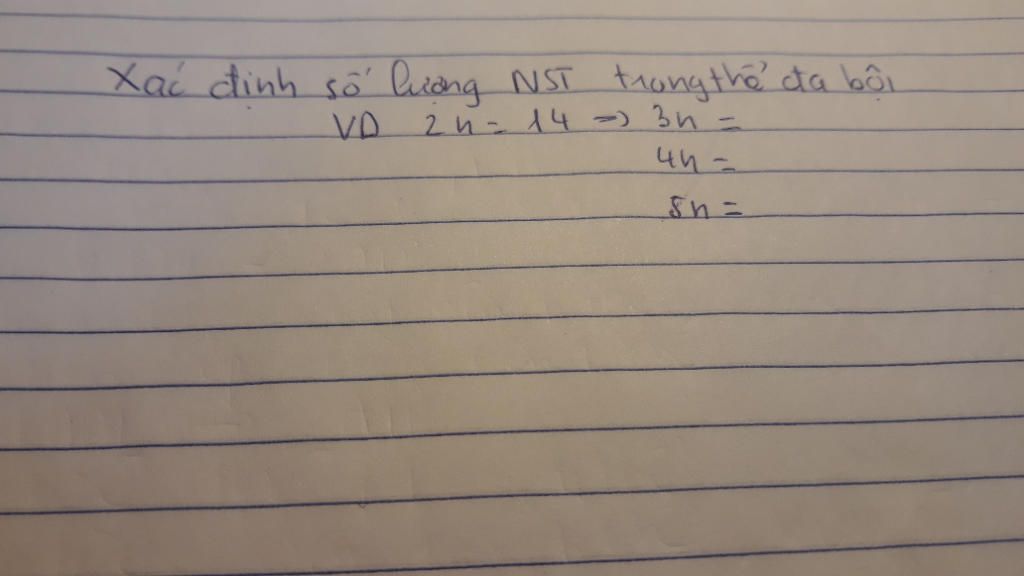 Xác định số lượng NST trong thể đa bội
VD 2n = 14 => 3n =
4n =
5n =